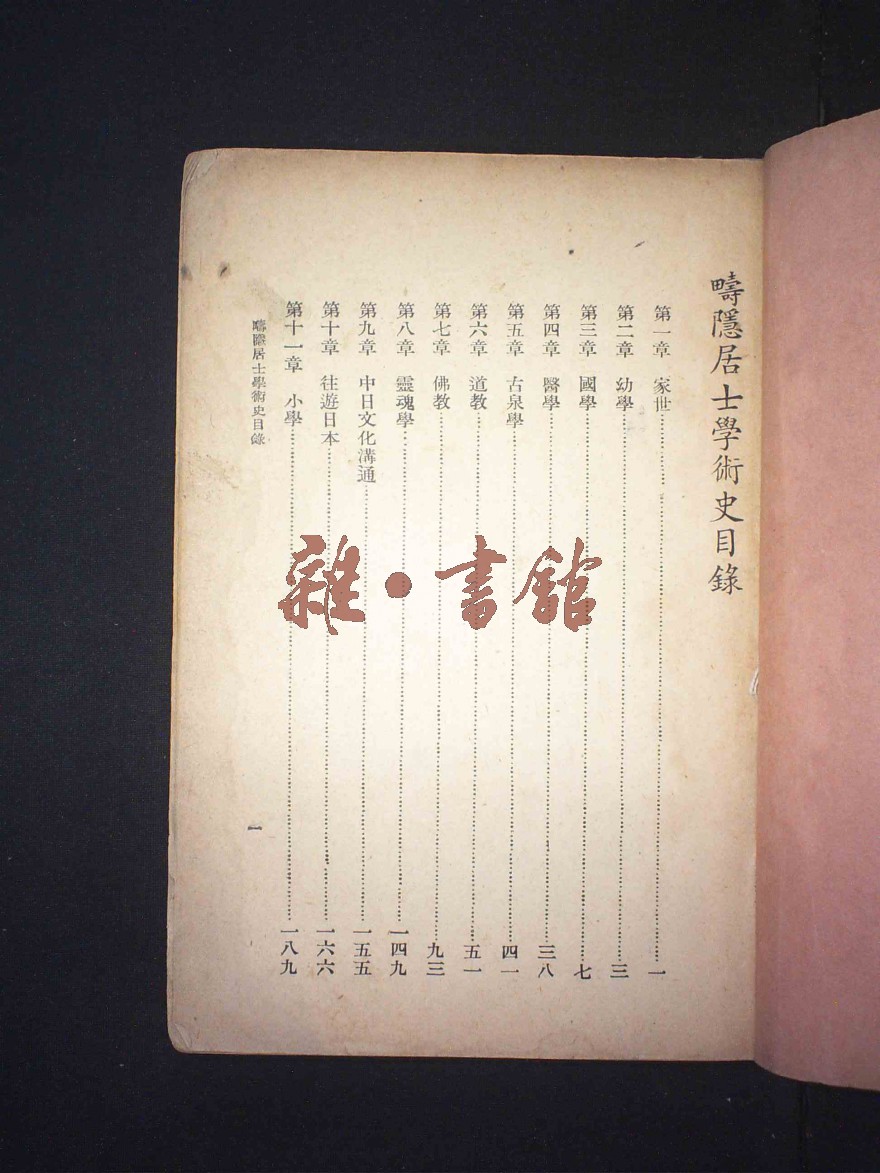 疇隱居士學術史目錄
第一章 家世…………一
第二章 幼學…………三
第三章 國學…………七
第四章 醫學…………三八
第五章 古泉學…………四一
第六章 道教…………五一
第七章 佛教…………九三
第八章 靈魂學…………一四九
第九章 中日文化溝通…………一五五
第十章 往遊日本…………一六六
第十一章 小學…………一八九
疇隱居士學術史目錄
一
雜•書館